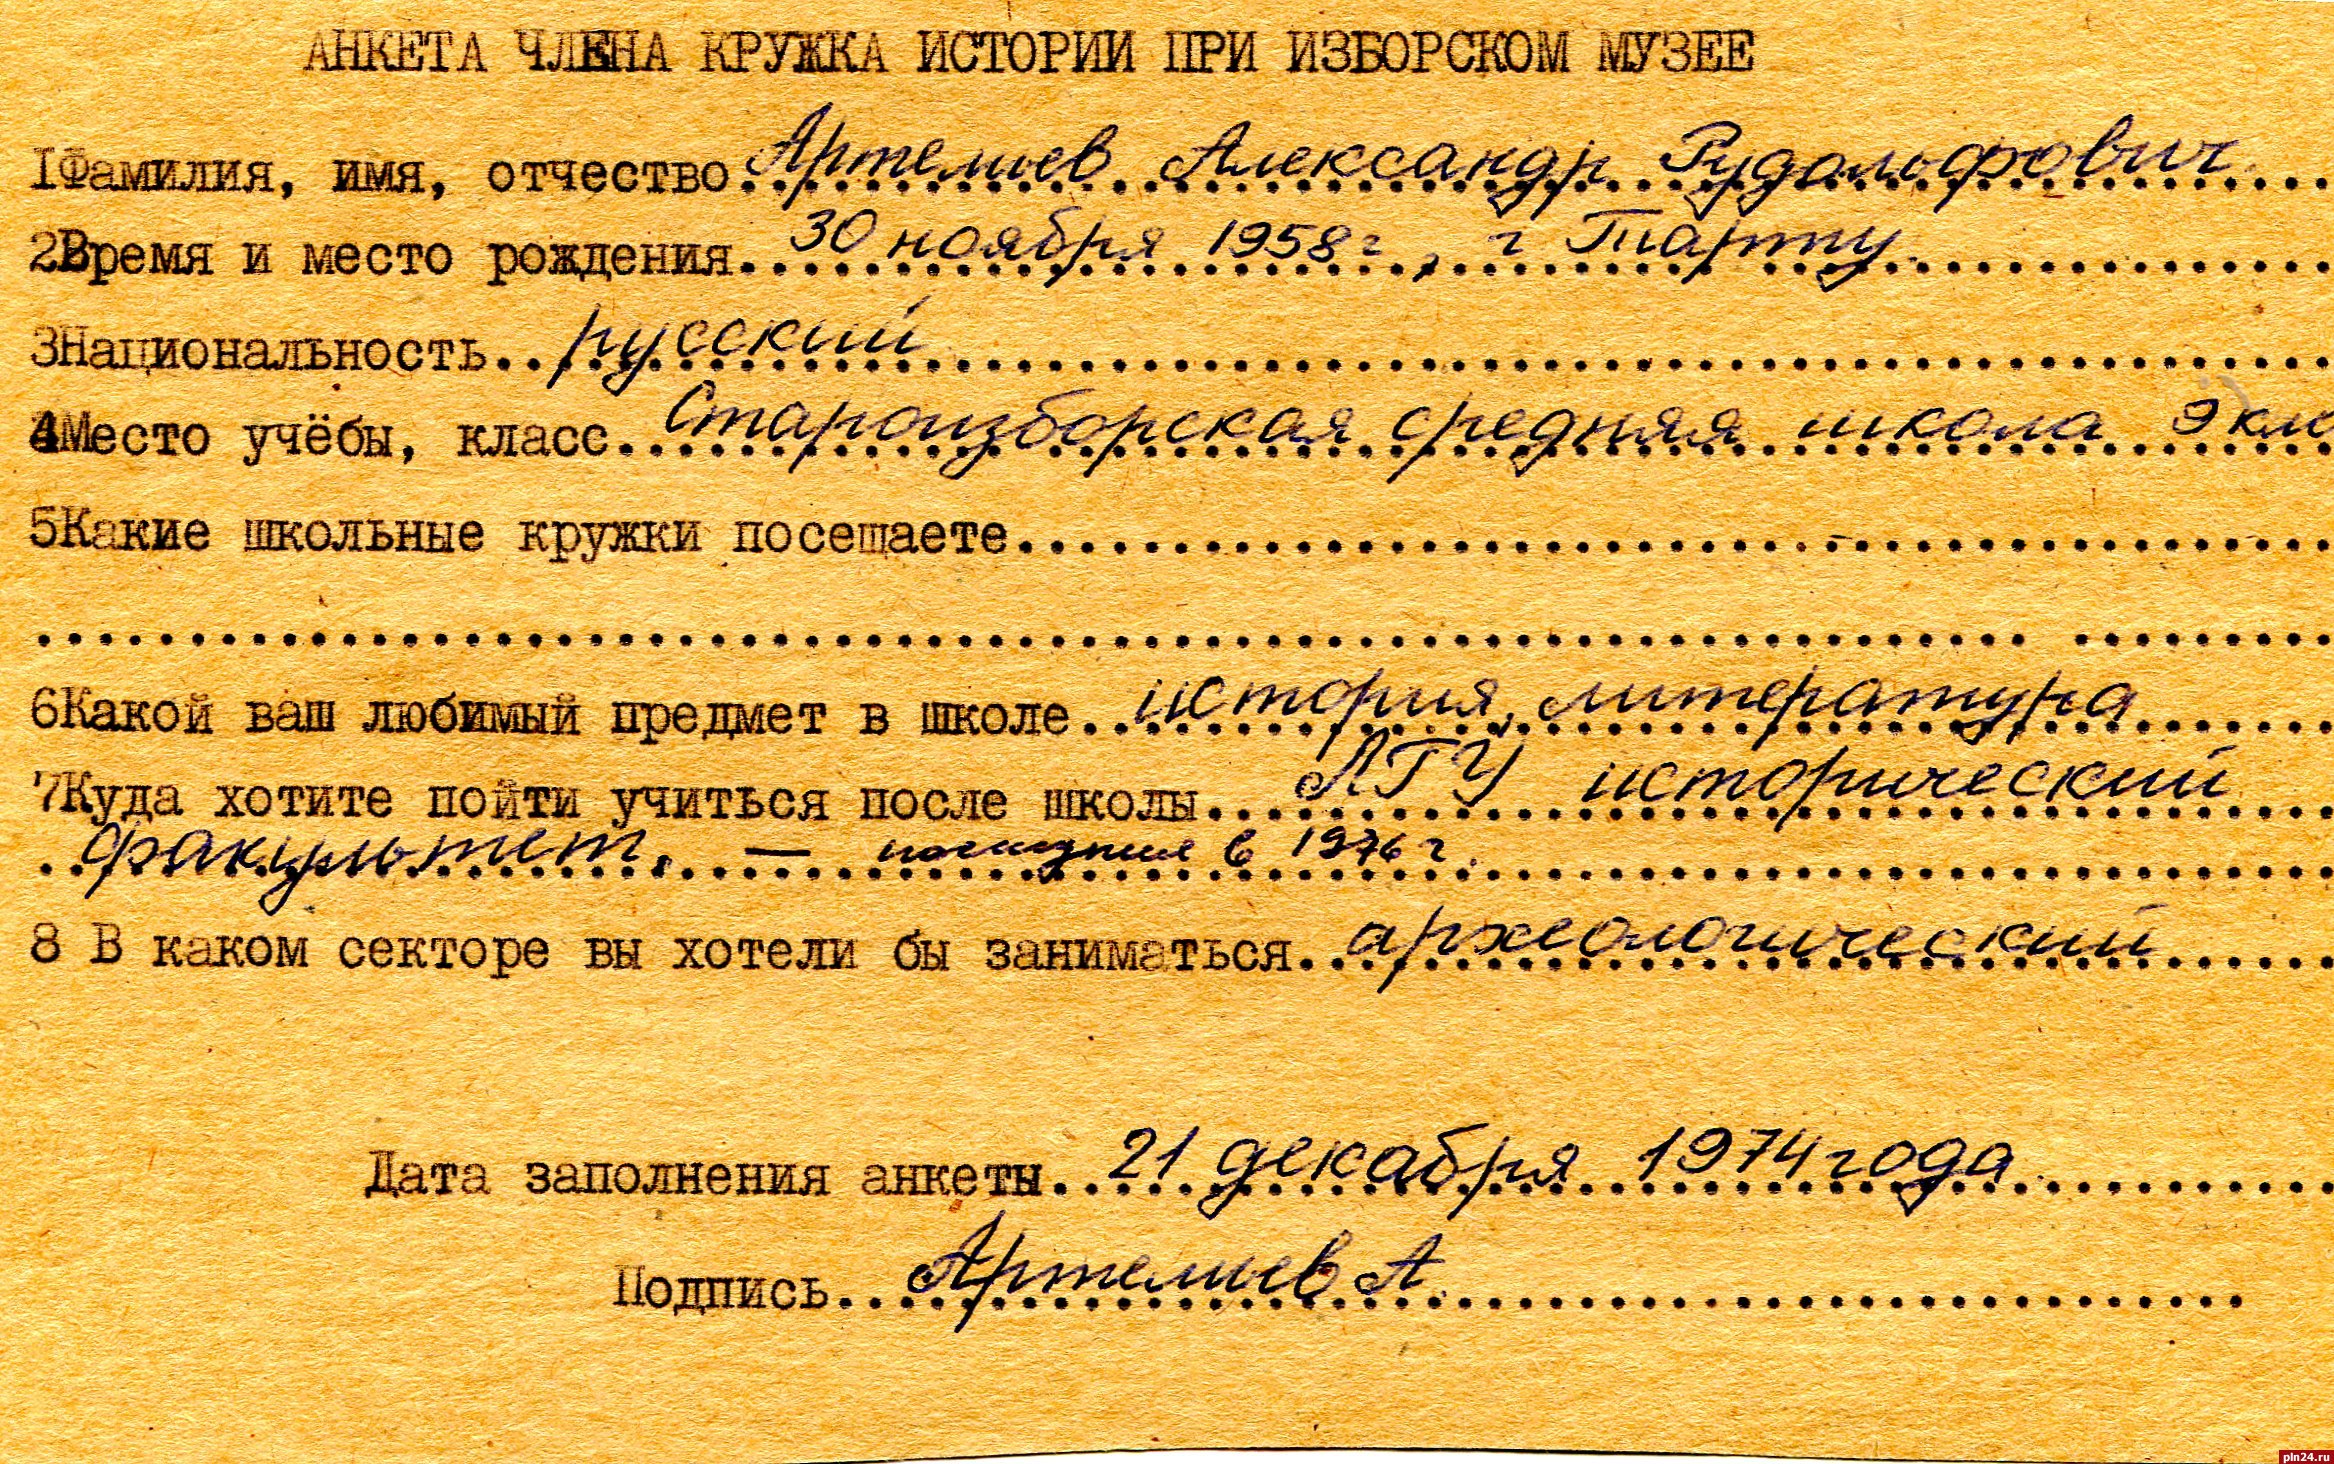 АНКЕТА ЧЛЕНА КРУЖКА ИСТОРИИ ПРИ ИЗБОРСКОМ МУЗЕЕ
1Фамилия, имя, отчество Артемьев Александр Рудольфович
2Время и место рождения 30 ноября 1958 г., г Тарту
3Национальность русский
4Место учёбы, класс Староизборская средняя школа 9 кл
5Какие школьные кружки посещаете
6Какой ваш любимый предмет в школе история, литература
7Куда хотите пойти учиться после школы ЛГУ исторический
факультет. — поступил в 1976 г.
8 В каком секторе вы хотели бы заниматься археологический
Дата заполнения анкеты 21 декабря 1974 года
Подпись Артемьев А.
pln24.ru